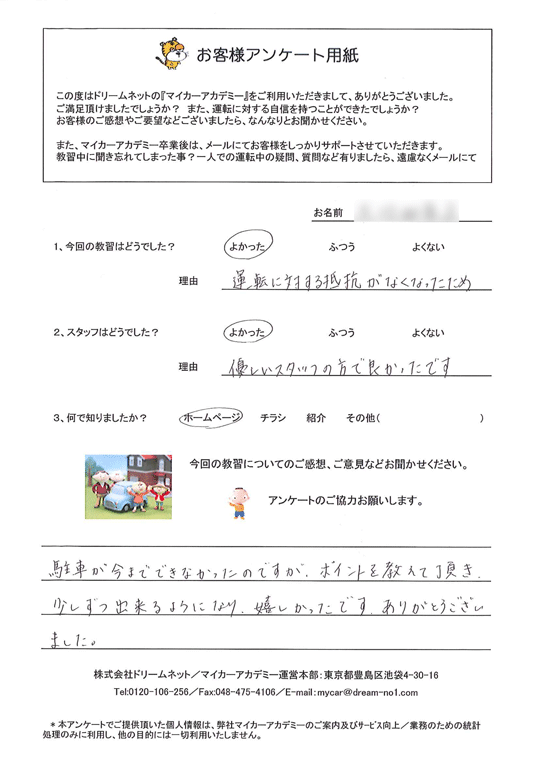 お客様アンケート用紙
この度はドリームネットの『マイカーアカデミー』をご利用いただきまして、ありがとうございました。
ご満足頂けましたでしょうか？ また、運転に対する自信を持つことができたでしょうか？
お客様のご感想やご要望などございましたら、なんなりとお聞かせください。
また、マイカーアカデミー卒業後は、メールにてお客様をしっかりサポートさせていただきます。
教習中に聞き忘れてしまった事？一人での運転中の疑問、質問など有りましたら、遠慮なくメールにて
お名前
1、今回の教習はどうでした？ よかった ふつう よくない
理由 運転に対する抵抗がなくなったため
2、スタッフはどうでした？ よかった ふつう よくない
理由 優しいスタッフの方で良かったです
3、何で知りましたか？ ホームページ チラシ 紹介 その他( )
今回の教習についてのご感想、ご意見などお聞かせください。
アンケートのご協力お願いします。
駐車が今までできなかったのですが、ポイントを教えて頂き、
少しずつ出来るようになり、嬉しかったです。ありがとうござい
ました。
株式会社ドリームネット／マイカーアカデミー運営本部：東京都豊島区池袋4-30-16
Tel:0120-106-256／Fax:048-475-4106／E-mail:mycar@dream-no1.com
＊本アンケートでご提供頂いた個人情報は、弊社マイカーアカデミーのご案内及びサービス向上／業務のための統計
処理のみに利用し、他の目的には一切利用いたしません。